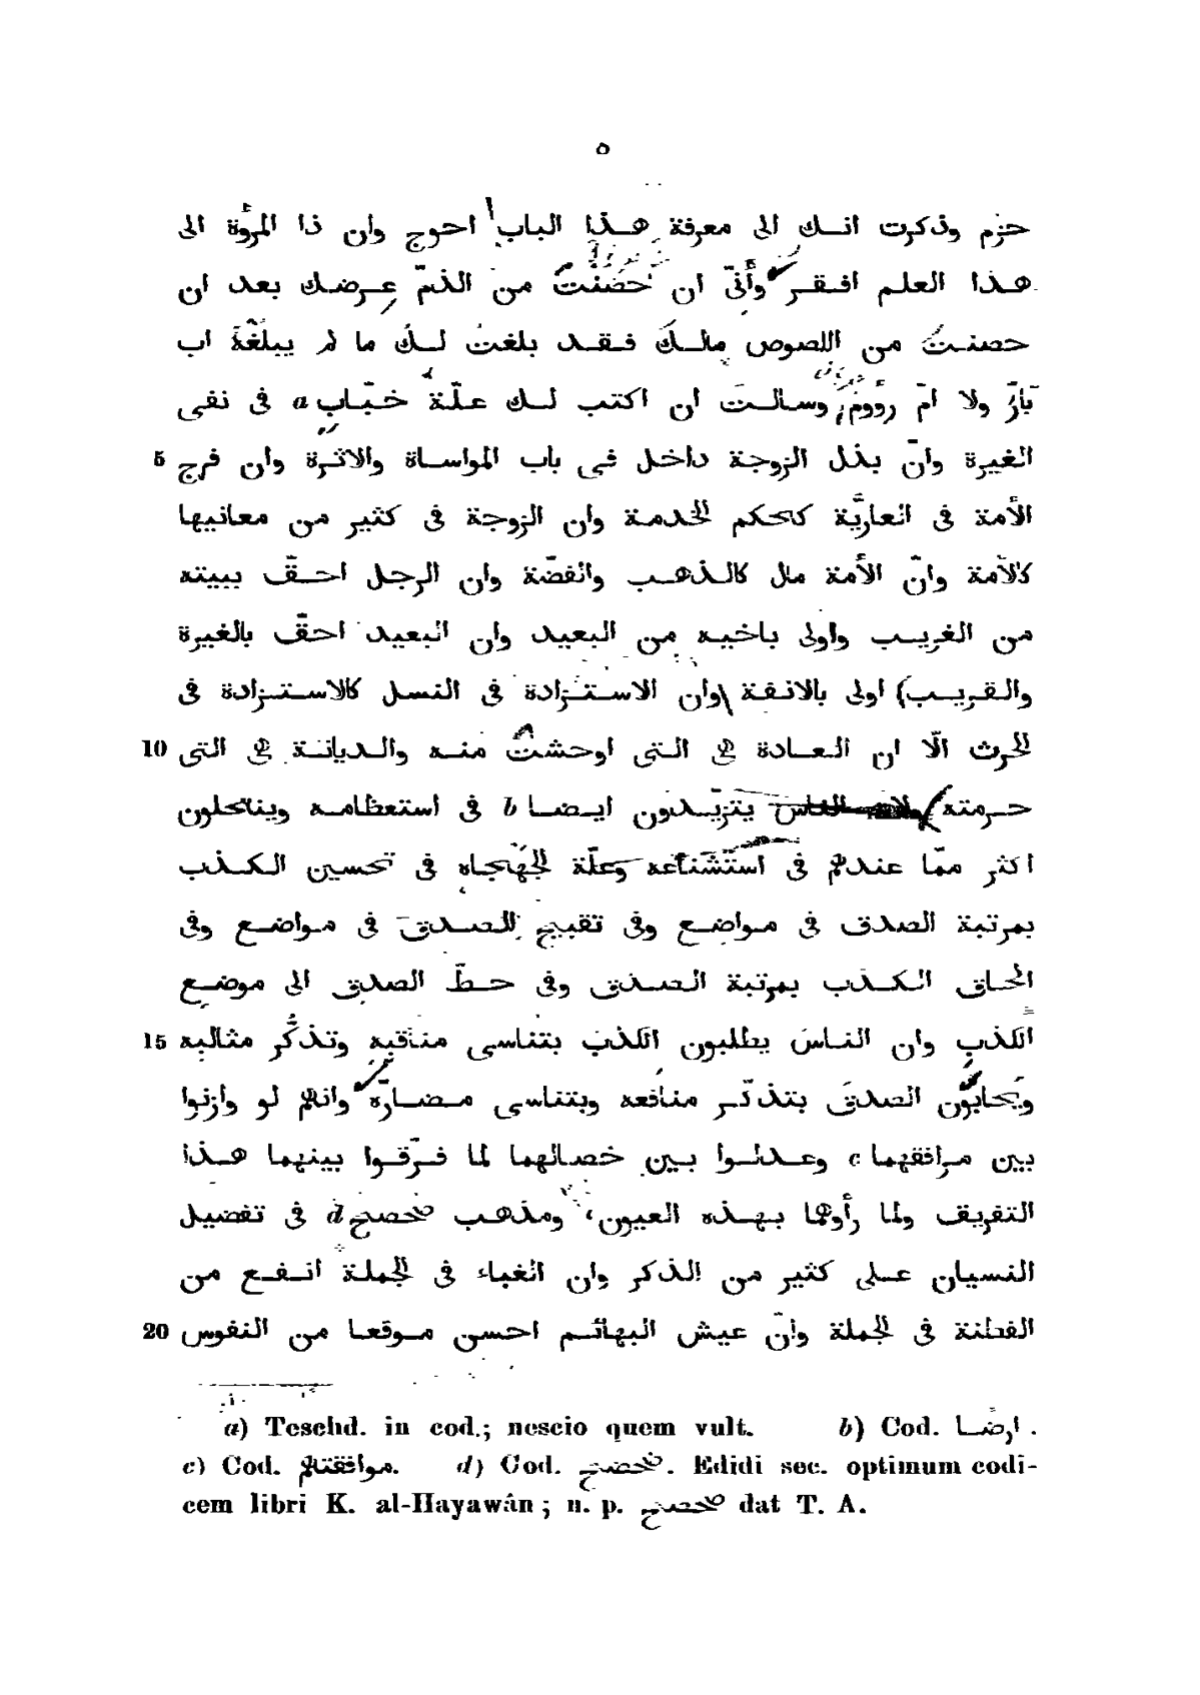 ٥
حزم وذكرت انك الى معرفة هذا الباب احوج وان ذا المروّة الى
هذا العلم افقر وأنّى ان حصّنت من الذمّ عرضك بعد ان
حصنت من اللصوص مالك فقد بلغت لك ما لم يبلغه اب
بارّ ولا امّ رؤوم وسالت ان اكتب لك علّة خبّاب a فى نفى
5 الغيرة وانّ بذل الزوجة داخل فى باب المواساة والاثرة وان فرج
الأمة فى العاريّة كحكم الخدمة وان الزوجة فى كثير من معانيها
كالأمة وانّ الأمة مال كالذهب والفضّة وان الرجل احقّ ببيته
من الغريب واولى باخيه من البعيد وان البعيد احقّ بالغيرة
والقريب اولى بالانفة وان الاستزادة فى النسل كالاستزادة فى
10 الحرث الّا ان العادة هى التى اوحشت منه والديانة هى التى
حرمته ولان الناس يتزيّدون ايضا b فى استعظامه وينتحلون
اكثر ممّا عندهم فى استشناعه وعلّة الجهجاه فى تحسين الكذب
بمرتبة الصدق فى مواضع وفى تقبيح الصدق فى مواضع وفى
الحاق الكذب بمرتبة الصدق وفى حطّ الصدق الى موضع
15 الكذب وان الناس يظلمون الكذب بتناسى مناقبه وتذكّر مثالبه
ويحابون الصدق بتذكّر منافعه وبتناسى مضارّه وانهم لو وازنوا
بين مرافقهما c وعدلوا بين خصالهما لما فرّقوا بينهما هذا
التفريق ولما رأوهما بهذه العيون، ومذهب صحصح d فى تفضيل
النسيان على كثير من الذكر وان الغباء فى الجملة انفع من
20 الفطنة فى الجملة وانّ عيش البهائم احسن موقعا من النفوس
a) Teschd. in cod.; nescio quem vult. b) Cod. ارضا.
c) Cod. موافقتهم. d) Cod. صخصح. Edidi sec. optimum codi-
cem libri K. al-Hayawân; n. p. صحصح dat T. A.